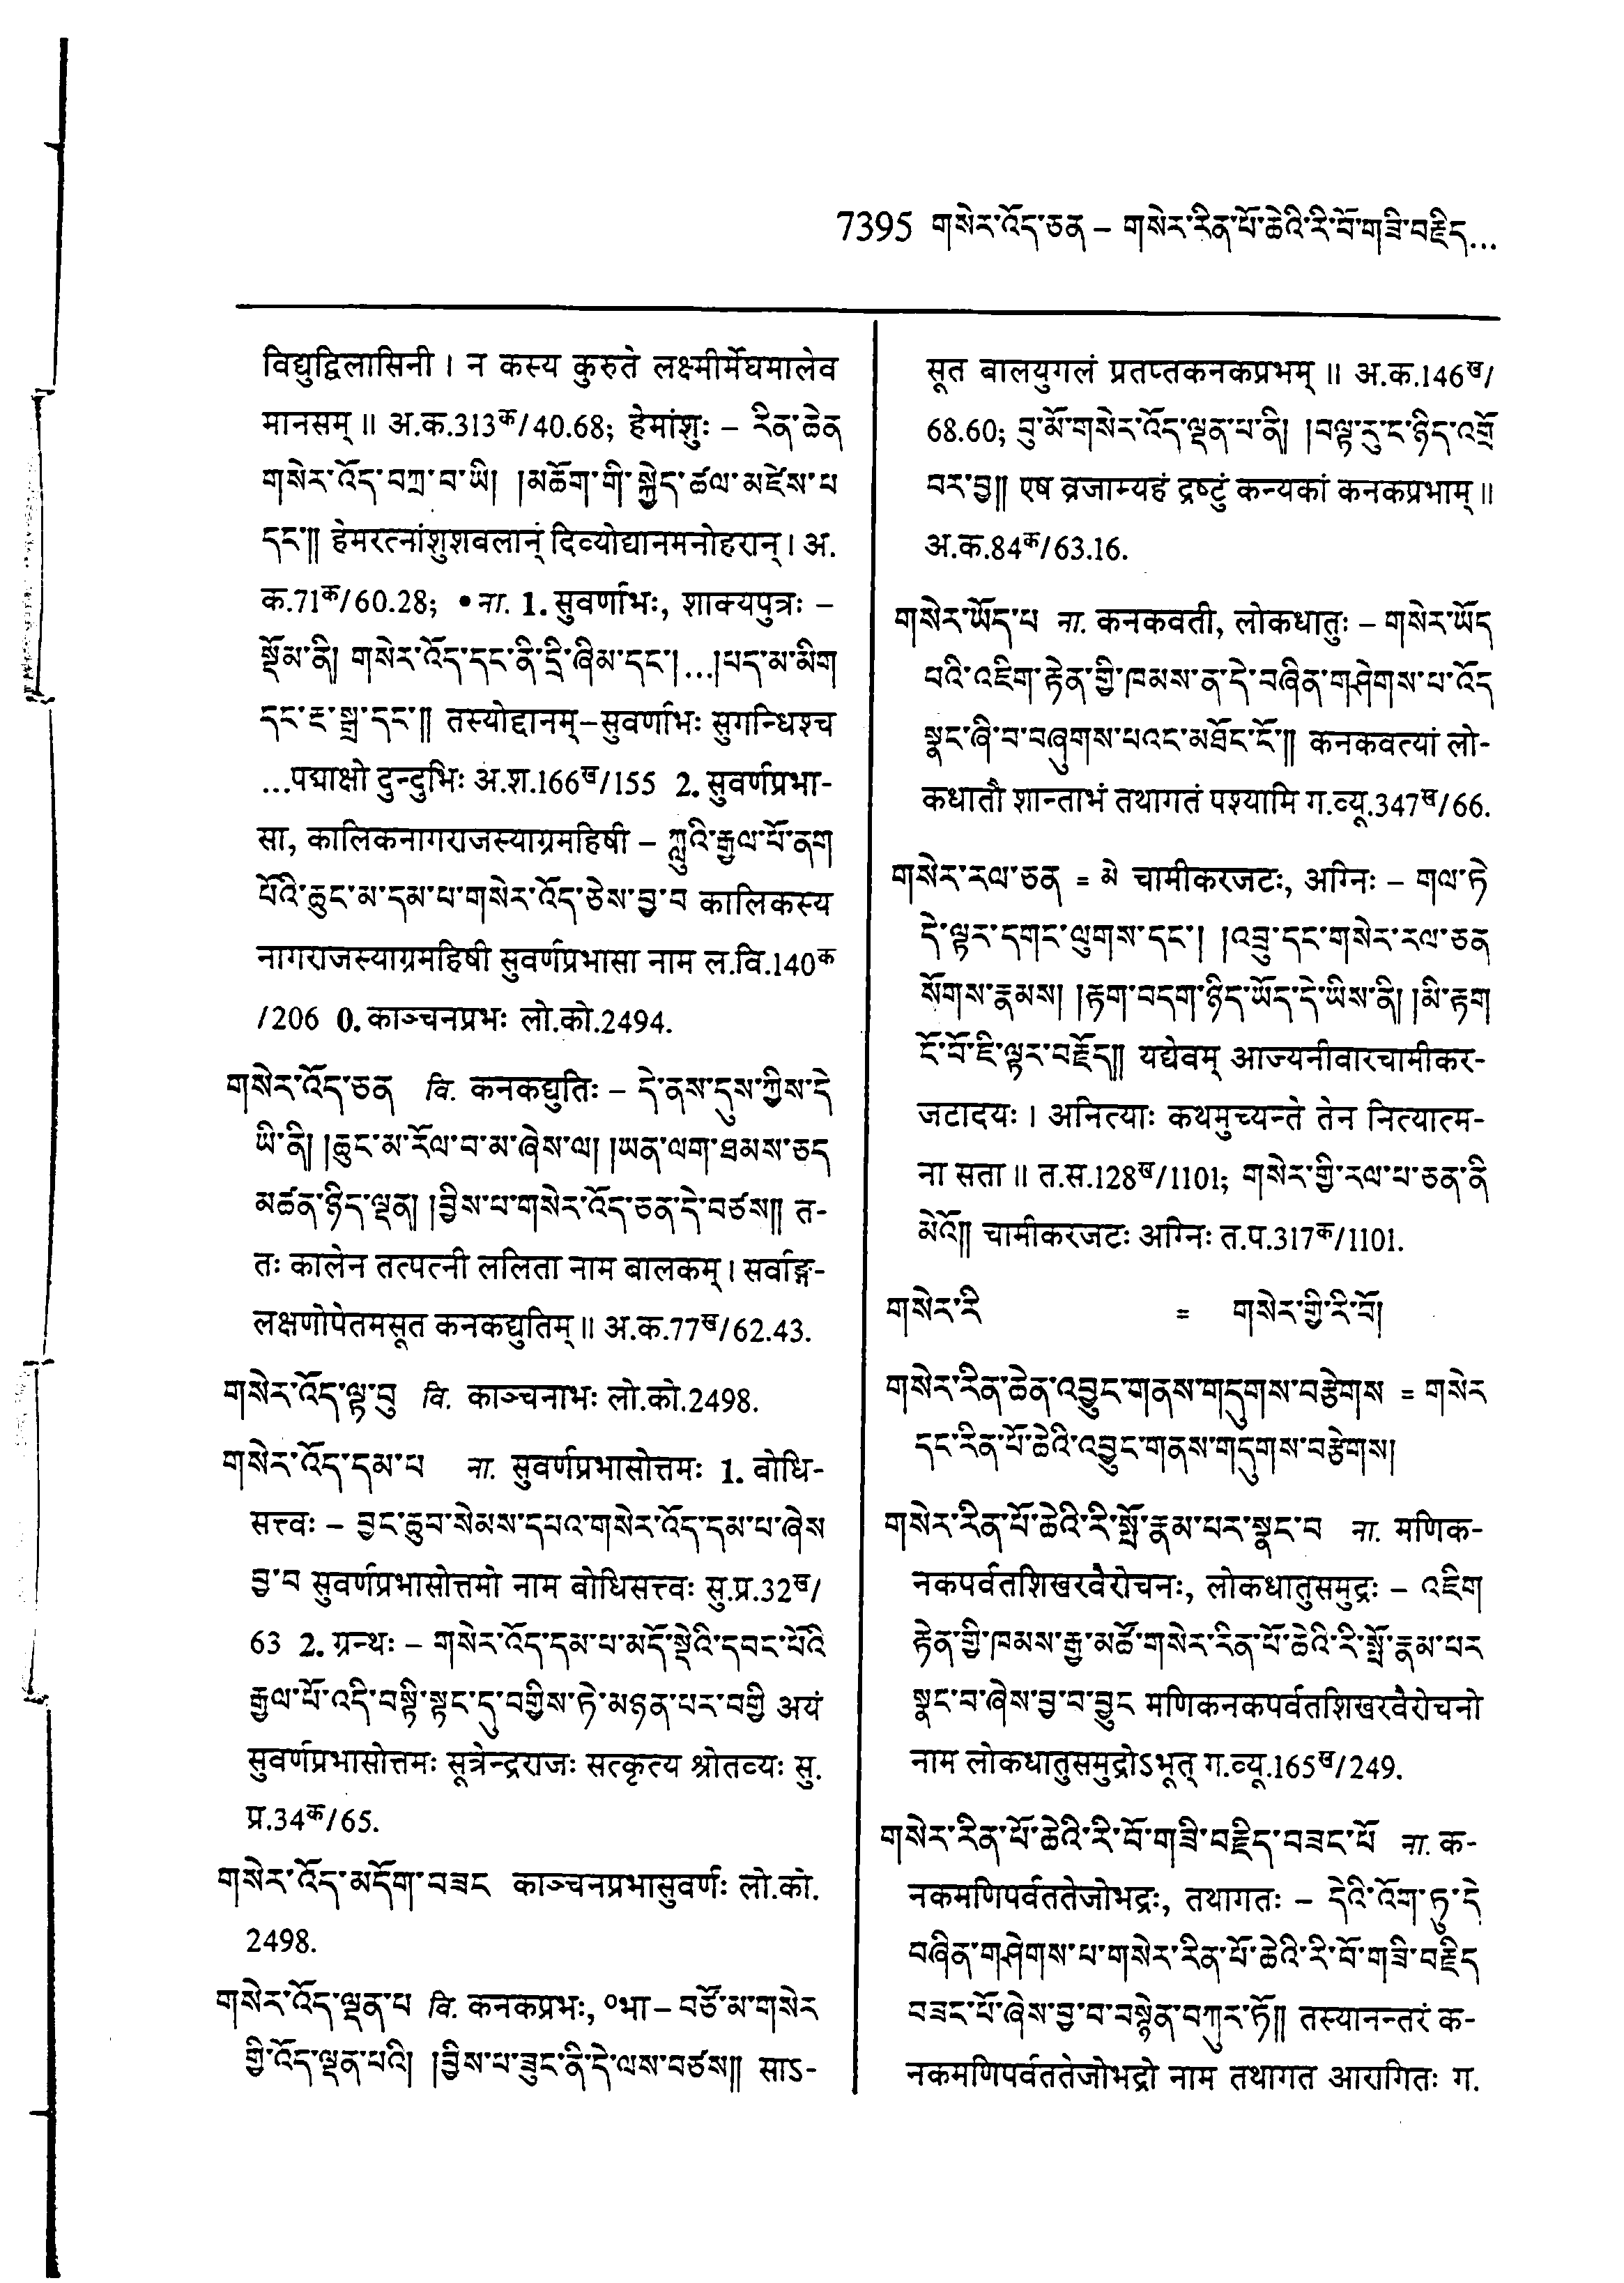 7395 གསེར་འོད་ཅན – གསེར་རིན་པོ་ཆེའི་རི་བོ་གཟི་བརྗིད...
विद्युद्विलासिनी । न कस्य कुरुते लक्ष्मीर्मेघमालेव
मानसम् ॥ अ.क.313क/40.68; हेमांशुः – རིན་ཆེན
གསེར་འོད་བཀྲ་བ་ཡི། །མཆོག་གི་སྐྱེད་ཚལ་མཛེས་པ
དང་༎ हेमरत्नांशुशबलान् दिव्योद्यानमनोहरान् । अ.
क.71क/60.28; • ना. 1. सुवर्णाभः, शाक्यपुत्रः –
སྡོམ་ནི། གསེར་འོད་དང་ནི་དྲི་ཞིམ་དང་།...།པད་མ་མིག
དང་རྔ་སྒྲ་དང་༎ तस्योद्दानम्–सुवर्णाभः सुगन्धिश्च
...पद्माक्षो दुन्दुभिः अ.श.166ख/155 2. सुवर्णप्रभा-
सा, कालिकनागराजस्याग्रमहिषी – ཀླུའི་རྒྱལ་པོ་ནག
པོའི་ཆུང་མ་དམ་པ་གསེར་འོད་ཅེས་བྱ་བ कालिकस्य
नागराजस्याग्रमहिषी सुवर्णप्रभासा नाम ल.वि.140क
/206 0. काञ्चनप्रभः लो.को.2494.
གསེར་འོད་ཅན वि. कनकद्युतिः – དེ་ནས་དུས་ཀྱིས་དེ
ཡི་ནི། །ཆུང་མ་རོལ་བ་མ་ཞེས་ལ། །ཡན་ལག་ཐམས་ཅད
མཚན་ཉིད་ལྡན། །བྱིས་པ་གསེར་འོད་ཅན་དེ་བཙས༎ त-
तः कालेन तत्पत्नी ललिता नाम बालकम् । सर्वाङ्ग-
लक्षणोपेतमसूत कनकद्युतिम् ॥ अ.क.77ख/62.43.
གསེར་འོད་ལྟ་བུ वि. काञ्चनाभः लो.को.2498.
གསེར་འོད་དམ་པ ना. सुवर्णप्रभासोत्तमः 1. बोधि-
सत्त्वः – བྱང་ཆུབ་སེམས་དཔའ་གསེར་འོད་དམ་པ་ཞེས
བྱ་བ सुवर्णप्रभासोत्तमो नाम बोधिसत्त्वः सु.प्र.32ख/
63 2. ग्रन्थः – གསེར་འོད་དམ་པ་མདོ་སྡེའི་དབང་པོའི
རྒྱལ་པོ་འདི་བསྟི་སྟང་དུ་བགྱིས་ཏེ་མཉན་པར་བགྱི अयं
सुवर्णप्रभासोत्तमः सूत्रेन्द्रराजः सत्कृत्य श्रोतव्यः सु.
प्र.34क/65.
གསེར་འོད་མདོག་བཟང काञ्चनप्रभासुवर्णः लो.को.
2498.
གསེར་འོད་ལྡན་པ वि. कनकप्रभः, ०भा – བཙོ་མ་གསེར
གྱི་འོད་ལྡན་པའི། །བྱིས་པ་ཟུང་ནི་དེ་ལས་བཙས༎ साऽ-
सूत बालयुगलं प्रतप्तकनकप्रभम् ॥ अ.क.146ख/
68.60; བུ་མོ་གསེར་འོད་ལྡན་པ་ནི། །བལྟ་རུ་ང་ཉིད་འགྲོ
བར་བྱ༎ एष व्रजाम्यहं द्रष्टुं कन्यकां कनकप्रभाम् ॥
अ.क.84क/63.16.
གསེར་ཡོད་པ ना. कनकवती, लोकधातुः – གསེར་ཡོད
པའི་འཇིག་རྟེན་གྱི་ཁམས་ན་དེ་བཞིན་གཤེགས་པ་འོད
སྣང་ཞི་བ་བཞུགས་པའང་མཐོང་ངོ་༎ कनकवत्यां लो-
कधातौ शान्ताभं तथागतं पश्यामि ग.व्यू.347ख/66.
གསེར་རལ་ཅན = མེ चामीकरजटः, अग्निः – གལ་ཏེ
དེ་ལྟར་དགང་ལུགས་དང་། །འབྲུ་དང་གསེར་རལ་ཅན
སོགས་རྣམས། །རྟག་བདག་ཉིད་ཡོད་དེ་ཡིས་ནི། །མི་རྟག
ངོ་བོ་ཇི་ལྟར་བརྗོད༎ यद्येवम् आज्यनीवारचामीकर-
जटादयः । अनित्याः कथमुच्यन्ते तेन नित्यात्म-
ना सता ॥ त.स.128ख/1101; གསེར་གྱི་རལ་པ་ཅན་ནི
མེའོ༎ चामीकरजटः अग्निः त.प.317क/1101.
གསེར་རི = གསེར་གྱི་རི་བོ།
གསེར་རིན་ཆེན་འབྱུང་གནས་གདུགས་བརྩེགས = གསེར
དང་རིན་པོ་ཆེའི་འབྱུང་གནས་གདུགས་བརྩེགས།
གསེར་རིན་པོ་ཆེའི་རི་སྤོ་རྣམ་པར་སྣང་བ ना. मणिक-
नकपर्वतशिखरवैरोचनः, लोकधातुसमुद्रः – འཇིག
རྟེན་གྱི་ཁམས་རྒྱ་མཚོ་གསེར་རིན་པོ་ཆེའི་རི་སྤོ་རྣམ་པར
སྣང་བ་ཞེས་བྱ་བ་བྱུང मणिकनकपर्वतशिखरवैरोचनो
नाम लोकधातुसमुद्रोऽभूत् ग.व्यू.165ख/249.
གསེར་རིན་པོ་ཆེའི་རི་བོ་གཟི་བརྗིད་བཟང་པོ ना. क-
नकमणिपर्वततेजोभद्रः, तथागतः – དེའི་འོག་ཏུ་དེ
བཞིན་གཤེགས་པ་གསེར་རིན་པོ་ཆེའི་རི་བོ་གཟི་བརྗིད
བཟང་པོ་ཞེས་བྱ་བ་བསྙེན་བཀུར་ཏོ༎ तस्यानन्तरं क-
नकमणिपर्वततेजोभद्रो नाम तथागत आरागितः ग.